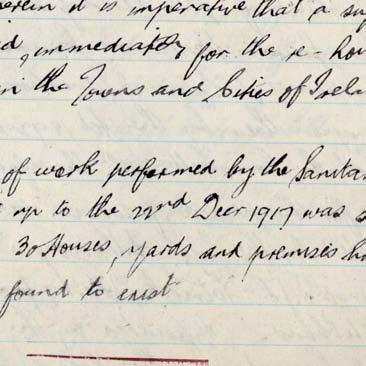 herein it is imperative that a su
d, immediately, for the e-hou
in the Towns and Cities of Irela
of work performed by the Sanita
up to the 22nd Decr 1917 was
30 Houses, yards and premises
found to exist